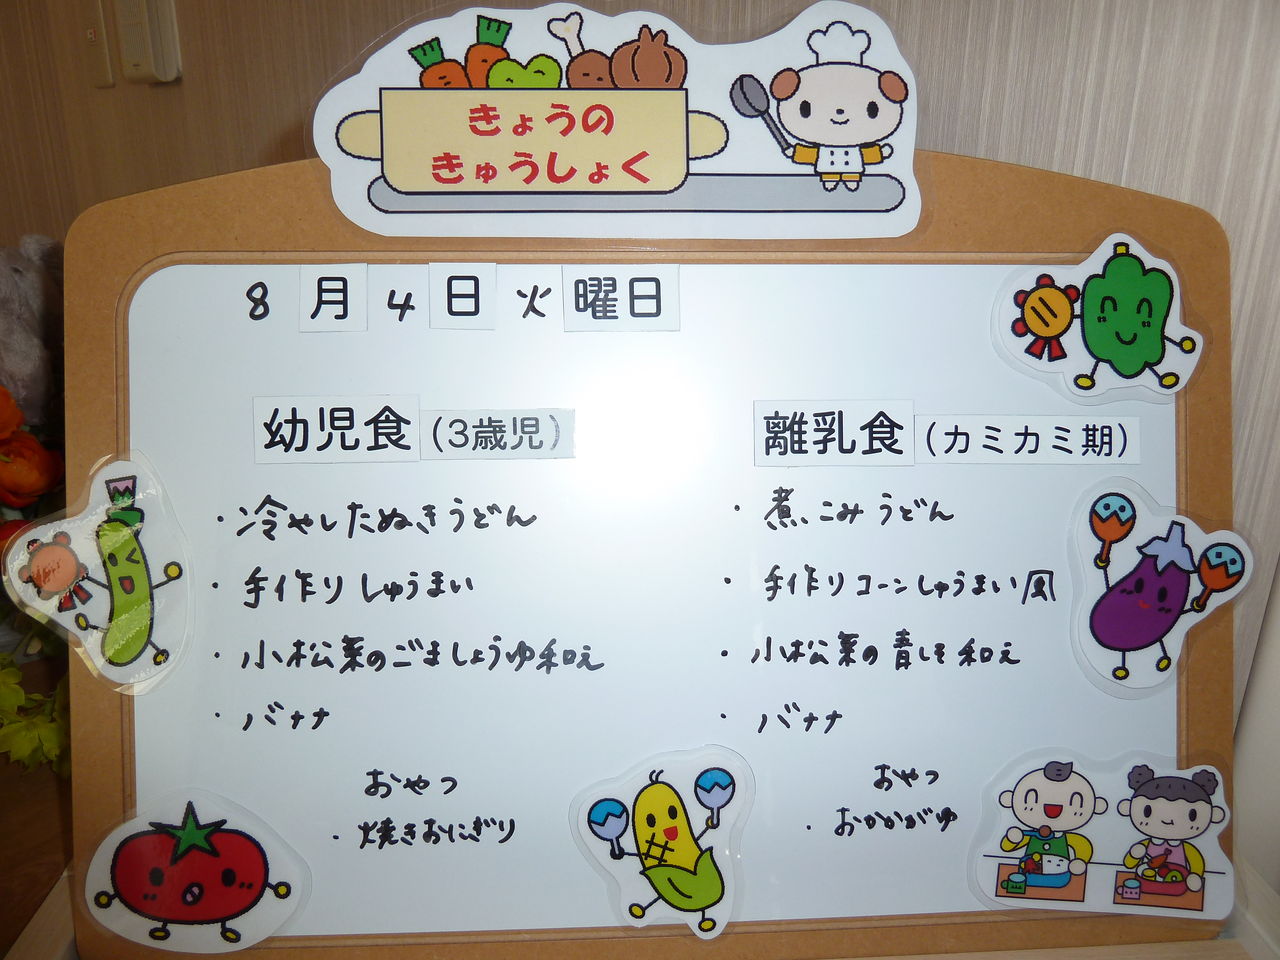 きょうの
きゅうしょく
8月4日火曜日
幼児食(3歳児)
・冷やしたぬきうどん
・手作りしゅうまい
・小松菜のごましょうゆ和え
・バナナ
おやつ
・焼きおにぎり
離乳食(カミカミ期)
・煮こみうどん
・手作りコーンしゅうまい風
・小松菜の青しそ和え
・バナナ
おやつ
・おかかがゆ